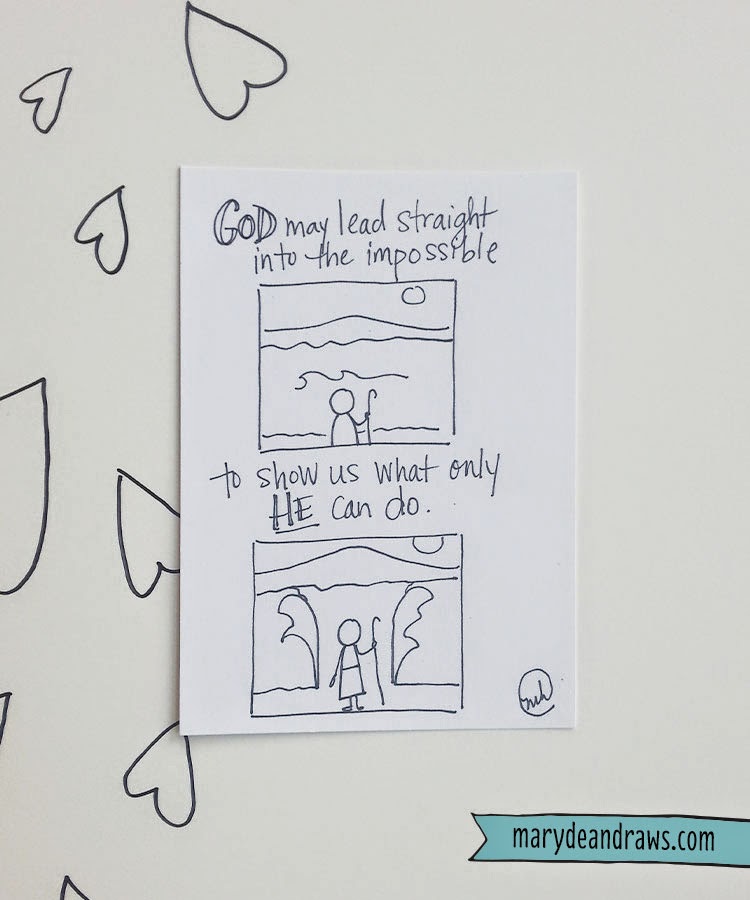 GOD may lead straight
into the impossible
to show us what only
HE can do.
mh
marydeandraws.com